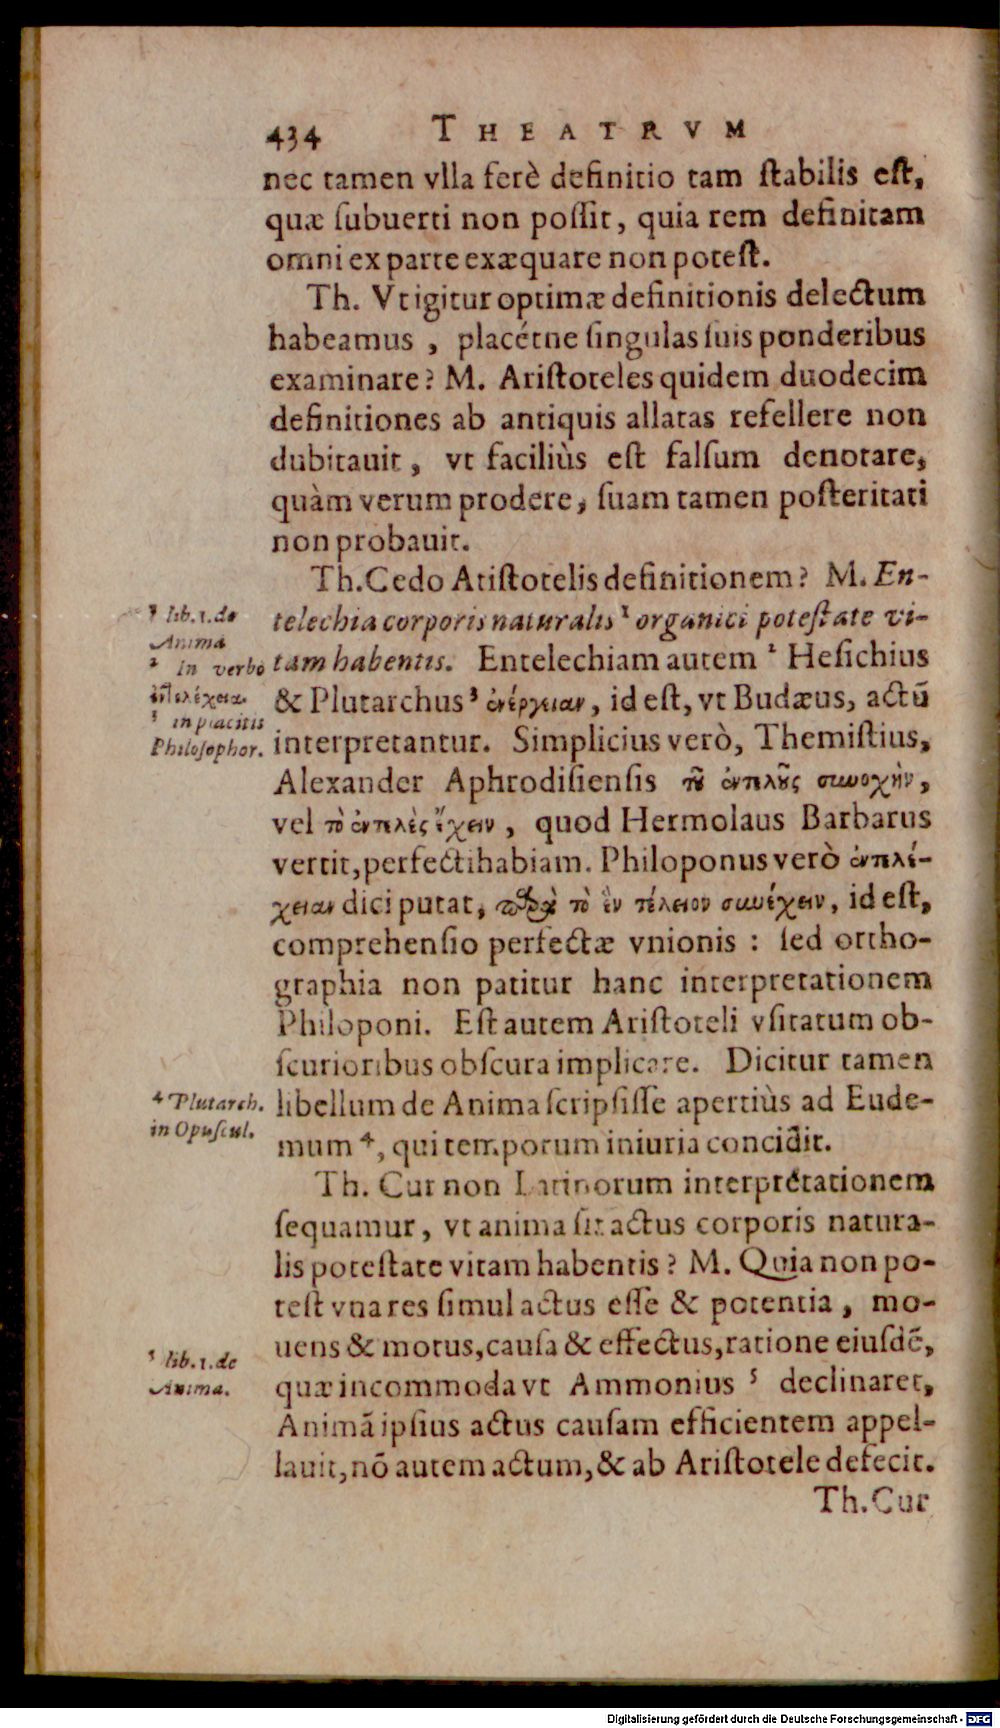 434 THEATRVM
nec tamen vlla ferè definitio tam ſtabilis eſt,
quæ ſubuerti non poſſit, quia rem definitam
omni ex parte exæquare non poteſt.
Th. Vt igitur optimæ definitionis delectum
habeamus, placétne ſingulas ſuis ponderibus
examinare? M. Ariſtoteles quidem duodecim
definitiones ab antiquis allatas refellere non
dubitauit, vt faciliùs eſt falſum denotare,
quàm verum prodere, ſuam tamen poſteritati
non probauit.
Th. Cedo Ariſtotelis definitionem? M. En-
telechia corporis naturalis ¹ organici poteſtate vi-
tam habentis. Entelechiam autem ² Heſichius
& Plutarchus ³ ἐνέργειαν, id eſt, vt Budæus, actū
interpretantur. Simplicius verò, Themiſtius,
Alexander Aphrodiſienſis τοῦ ἐντελοῦς συνοχὴν,
vel τὸ ἐντελὲς ἔχειν, quod Hermolaus Barbarus
vertit, perfectihabiam. Philoponus verò ἐντελέ-
χειαν dici putat, παρὰ τὸ ἓν τέλειον συνέχειν, id eſt,
comprehenſio perfectæ vnionis: ſed ortho-
graphia non patitur hanc interpretationem
Philoponi. Eſt autem Ariſtoteli vſitatum ob-
ſcurioribus obſcura implicare. Dicitur tamen
libellum de Anima ſcripſiſſe apertiùs ad Eude-
mum ⁴, qui temporum iniuria concidit.
Th. Cur non Latinorum interpretationem
ſequamur, vt anima ſit actus corporis natura-
lis poteſtate vitam habentis? M. Quia non po-
teſt vna res ſimul actus eſſe & potentia, mo-
uens & motus, cauſa & effectus, ratione eiuſdē,
quæ incommoda vt Ammonius ⁵ declinaret,
Animā ipſius actus cauſam efficientem appel-
lauit, nō autem actum, & ab Ariſtotele defecit.
Th. Cur
¹ lib. 1. de
Anima
² In verbo
ἐντελέχεια.
³ in placitis
Philoſophor.
⁴ Plutarch.
in Opuſcul.
⁵ lib. 1. de
Anima.
Digitalisierung gefördert durch die Deutsche Forschungsgemeinschaft - DFG